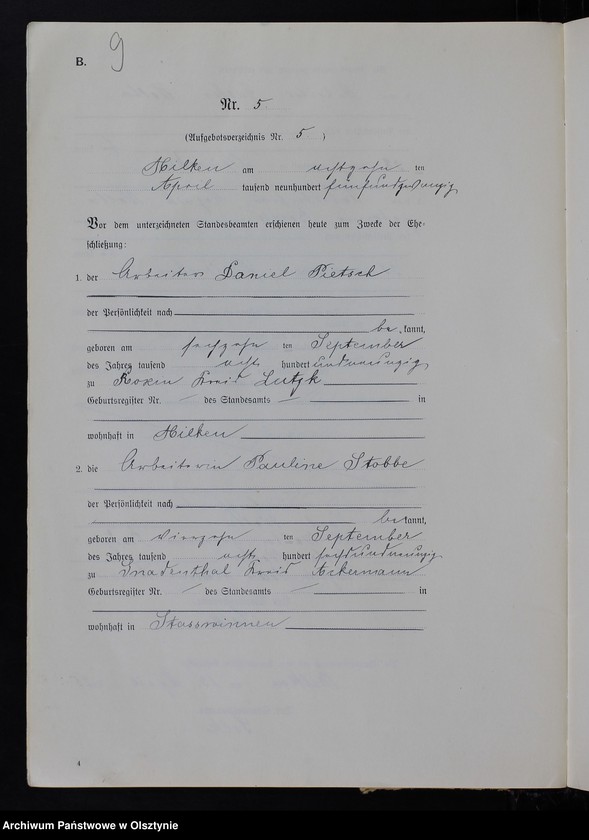 B. 9
Nr. 5.
(Aufgebotsverzeichnis Nr. 5)
Hilken am achtzehn ten
April tausend neunhundert fünfundzwanzig
Vor dem unterzeichneten Standesbeamten erschienen heute zum Zwecke der Ehe-
schließung:
1. der Arbeiter Daniel Pietsch
der Persönlichkeit nach
be kannt,
geboren am sechzehn ten September
des Jahres tausend acht hundert
zu Kreis Lutzk
Geburtsregister Nr. — des Standesamts — in
wohnhaft in Hilken
2. die Arbeiterin Pauline Stobbe
der Persönlichkeit nach
be kannt,
geboren am vierzehn ten September
des Jahres tausend acht hundert sechsundneunzig
zu Gnadenthal Kreis Ackermann
Geburtsregister Nr. — des Standesamts — in
wohnhaft in Stasswinnen
4
Archiwum Państwowe w Olsztynie